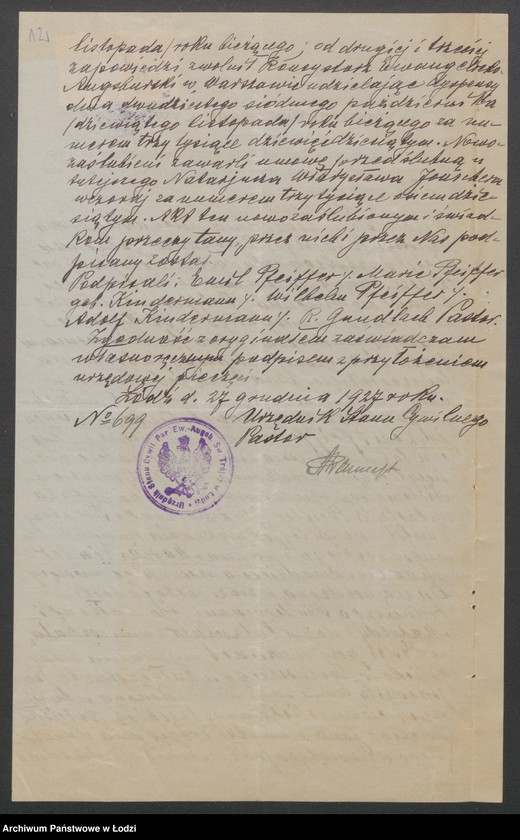 121
listopada/ roku bieżącego; od drugiej i trzeciej
zapowiedzi zwolnił Konsystorz Ewangelicko-
Augsburski w Warszawie udzielając dyspenzy
dnia dwudziestego siódmego października
/dziewiątego listopada/ roku bieżącego za nu-
merem trzy tysiące dziewięćdziesiątym. Nowo-
zaślubieni zawarli umowę przedślubną u
tutejszego Notarjusza Władysława Jonschera
wczoraj za numerem trzy tysiące osiemdzie-
siątym. Akt ten nowozaślubionym i świad-
kom przeczytany, przez nich i przez Nas pod-
pisany został.
Podpisali: Emil Pfeiffer /. Marie Pfeiffer
geb. Kindermann /. Wilhelm Pfeiffer /.
Adolf Kindermann /. R. Gundlach Pastor.
Zgodność z oryginałem zaświadczam
własnoręcznym podpisem z przyłożeniem
urzędowej pieczęci.
Łódź d. 27 grudnia 1927 roku.
№ 699 Urzędnik Stanu Cywilnego
Pastor
Urzędnik Stanu Cywil. Par. Ew.-Augsb. Św. Trójcy w Łodzi
Archiwum Państwowe w Łodzi